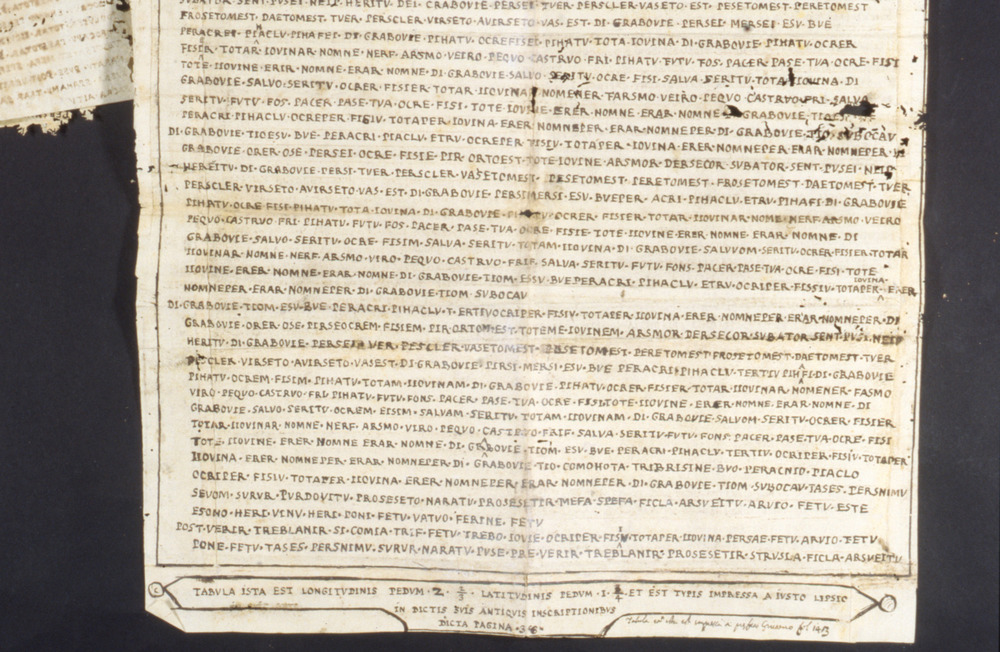 SUBATOR · SENT · PUSEI · NEIP · HERITU · DEI · CRABOVIE · PERSEI · TUER · PERSCLER · VASETO · EST · PESETOMEST · PERETOMEST
FROSETOMEST · DAETOMEST · TVER · PERSCLER · VIRSETO · AVIRSETO · VAS · EST · DI · GRABOVIE · PERSEI · MERSEI · ESV · BVE
PERACREI · PIACLV · PIHAFEI · DI · GRABOVIE · PIHATV · OCREFISEI · PIHATV · TOTA · IOVINA · DI · GRABOVIE · PIHATV · OCRER
FISER · TOTAR · IOVINAR · NOMNE · NERF · ARSMO · VEIRO · PEQVO · CASTRVO · FRI · PIHATV · FVTV · FOS · PACER · PASE · TVA · OCRE · FISI
TOTE · IIOVINE · ERIR · NOMNE · ERAR · NOMNE · DI · GRABOVIE · SALVO · SERITV · OCRE · FISI · SALVA · SERITV · TOTA · IIOVINA · DI
GRABOVIE · SALVO · SERITV · OCRER · FISIER · TOTAR · IIOVINAR · NOMENER · FARSMO · VEIRO · PEQVO · CASTRVO · FRI · SALVA
SERITV · FVTV · FOS · PACER · PASE · TVA · OCRE · FISI · TOTE · IIOVINE · ERER · NOMNE · ERAR · NOMNE · GRABOVIE
PERACRI · PIHACLV · OCREPER · FISIV · TOTAPER · IOVINA · ERER · NOMNEPER · ERAR · NOMNEPER · DI · GRABOVIE · TIO · SVBOCAV
DI · GRABOVIE · TIOESV · BVE · PERACRI · PIACLV · ETRV · OCREPER · FISIV · TOTAPER · IOVINA · ERER · NOMNEPER · ERAR · NOMNEPER ·
GRABOVIE · ORER · OSE · PERSEI · OCRE · FISIE · PIR · ORTOEST · TOTE · IOVINE · ARSMOR · DERSECOR · SVBATOR · SENT · PVSEI · NEIP
HEREITV · DI · GRABOVIE · PERSI · TVER · PERSCLER · VASETOMEST · PESETOMEST · PERETOMEST · FROSETOMEST · DAETOMEST · TVER
PERSCLER · VIRSETO · AVIRSETO · VAS · EST · DI · GRABOVIE · PERSIMERSI · ESV · BVEPER · ACRI · PIHACLV · ETRV · PIHAFI · DI · GRABOVIE
PIHATV · OCRE · FISI · PIHATV · TOTA · IOVINA · DI · GRABOVIE · PIHATV · OCRER · FISIER · TOTAR · IIOVINAR · NOME · NERF · ARSMO · VEIRO
PEQVO · CASTRVO · FRI · PIHATV · FVTV · FOS · PACER · PASE · TVA · OCRE · FISIE · TOTE · IIOVINE · ERER · NOMNE · ERAR · NOMNE · DI
GRABOVIE · SALVO · SERITV · OCRE · FISIM · SALVA · SERITV · TOTAM · IIOVINA · DI · GRABOVIE · SALVVOM · SERITV · OCRER · FISIER · TOTAR
IIOVINAR · NOMNE · NERF · ARSMO · VIRO · PEQVO · CASTRVO · FRIF · SALVA · SERITV · FVTV · FONS · PACER · PASE · TVA · OCRE · FISI · TOTE
IIOVINE · ERER · NOMNE · ERAR · NOMNE · DI · GRABOVIE · TIOM · ESSV · BVEPERACRI · PIHACLV · ETRV · OCRIPER · FISSIV · TOTAPER · IOVINA · ERER
NOMNEPER · ERAR · NOMNEPER · DI · GRABOVIE · TIOM · SVBOCAV
DI · GRABOVIE · TIOM · ESV · BVE · PERACRI · PIHACLV · TERTIVOCRIPER · FISIV · TOTAPER · IIOVINA · ERER · NOMNEPER · ERAR · NOMNEPER · DI
GRABOVIE · ORER · OSE · PIRSEOCREM · FISIEM · PIR · ORTOM · EST · TOTEME · IOVINEM · ARSMOR · DERSECOR · SVBATOR · SENT · PVSI · NEIP
HERITV · DI · GRABOVIE · PERSEI TVER · PESCLER · VASETOMEST · PESETOMEST · PERETOMEST FROSETOMEST · DAETOMEST · TVER
PESCLER · VIRSETO · AVIRSETO · VASEST · DI · GRABOVIE · PIRSI · MERSI · ESV · BVE PERACRI · PIHACLV · TERTIV PIHAFI · DI · GRABOVIE
PIHATV · OCREM · FISIM · PIHATV · TOTAM · IIOVINAM · DI · GRABOVIE · PIHATV · OCRER · FISIER · TOTAR · IIOVINAR · NOMENER · FASMO
VIRO · PEQVO · CASTRVO · FRI · PIHATV · FVTV · FONS · PACER · PASE · TVA · OCRE · FISI · TOTE · IIOVINE · ERER · NOMNE · ERAR · NOMNE · DI
GRABOVIE · SALVO · SERITV · OCREM · FISIM · SALVAM · SERITV · TOTAM · IIOVINAM · DI · GRABOVIE · SALVOM · SERITV · OCRER · FISIER
TOTAR · IIOVINAR · NOMNE · NERF · ARSMO · VIRO · PEQVO · CASTRVO · FRIF · SALVA · SERITV · FVTV · FONS · PACER · PASE · TVA · OCRE · FISI
TOTE · IIOVINE · ERER · NOMNE ERAR · NOMNE · DI · GRABOVIE · TIOM · ESV · BVE · PERACRI · PIHACLV · TERTIV · OCRIPER · FISIV · TOTAPER
IIOVINA · ERER · NOMNEPER · ERAR · NOMNEPER · DI · GRABOVIE · TIO · COMOHOTA · TRIBRISINE · BVO · PERACNIO · PIACLO
OCRIPER · FISIV · TOTAPER · IIOVINA · ERER · NOMNEPER · ERAR · NOMNEPER · DI · GRABOVIE · TIOM · SVBOCAV · TASES · PERSNIMV
SEVOM · SVRVR · PVRDOVITV · PROSESETO · NARATV · PROSESETIR · MEFA · SPEFA · FICLA · ARSVEITV · ARVIO · FETV · ESTE
ESONO · HERI · VINV · HERI · PONI · FETV · VATVO · FERINE · FETV
POST · VERIR · TREBLANIR · SI · COMIA · TRIF · FETV · TREBO · IOVIE · OCRIPER · FISIV · TOTAPER · IIOVINA · PERSAE · FETV · ARVIO · FETV
PONE · FETV · TASES · PERSNIMV · SVRVR · NARATV · PVSE · PRE · VERIR · TREBLANIR · PROSESETIR · STRVSLA · FICLA · ARSVEITV
TABVLA ISTA EST LONGITVDINIS PEDVM · 2 · LATITVDINIS PEDVM · I · ET EST TYPIS IMPRESSA A IVSTO LIPSIO
IN DICTIS SVIS ANTIQVIS INSCRIPTIONIBVS
DICTA PAGINA · 38 ·